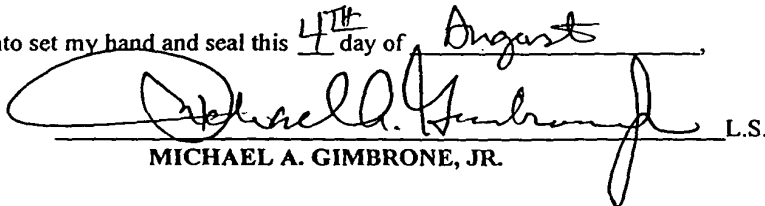 nto set my hand and seal this 4TH day of August,
Michael A. Gimbrone Jr. L.S.
MICHAEL A. GIMBRONE, JR.